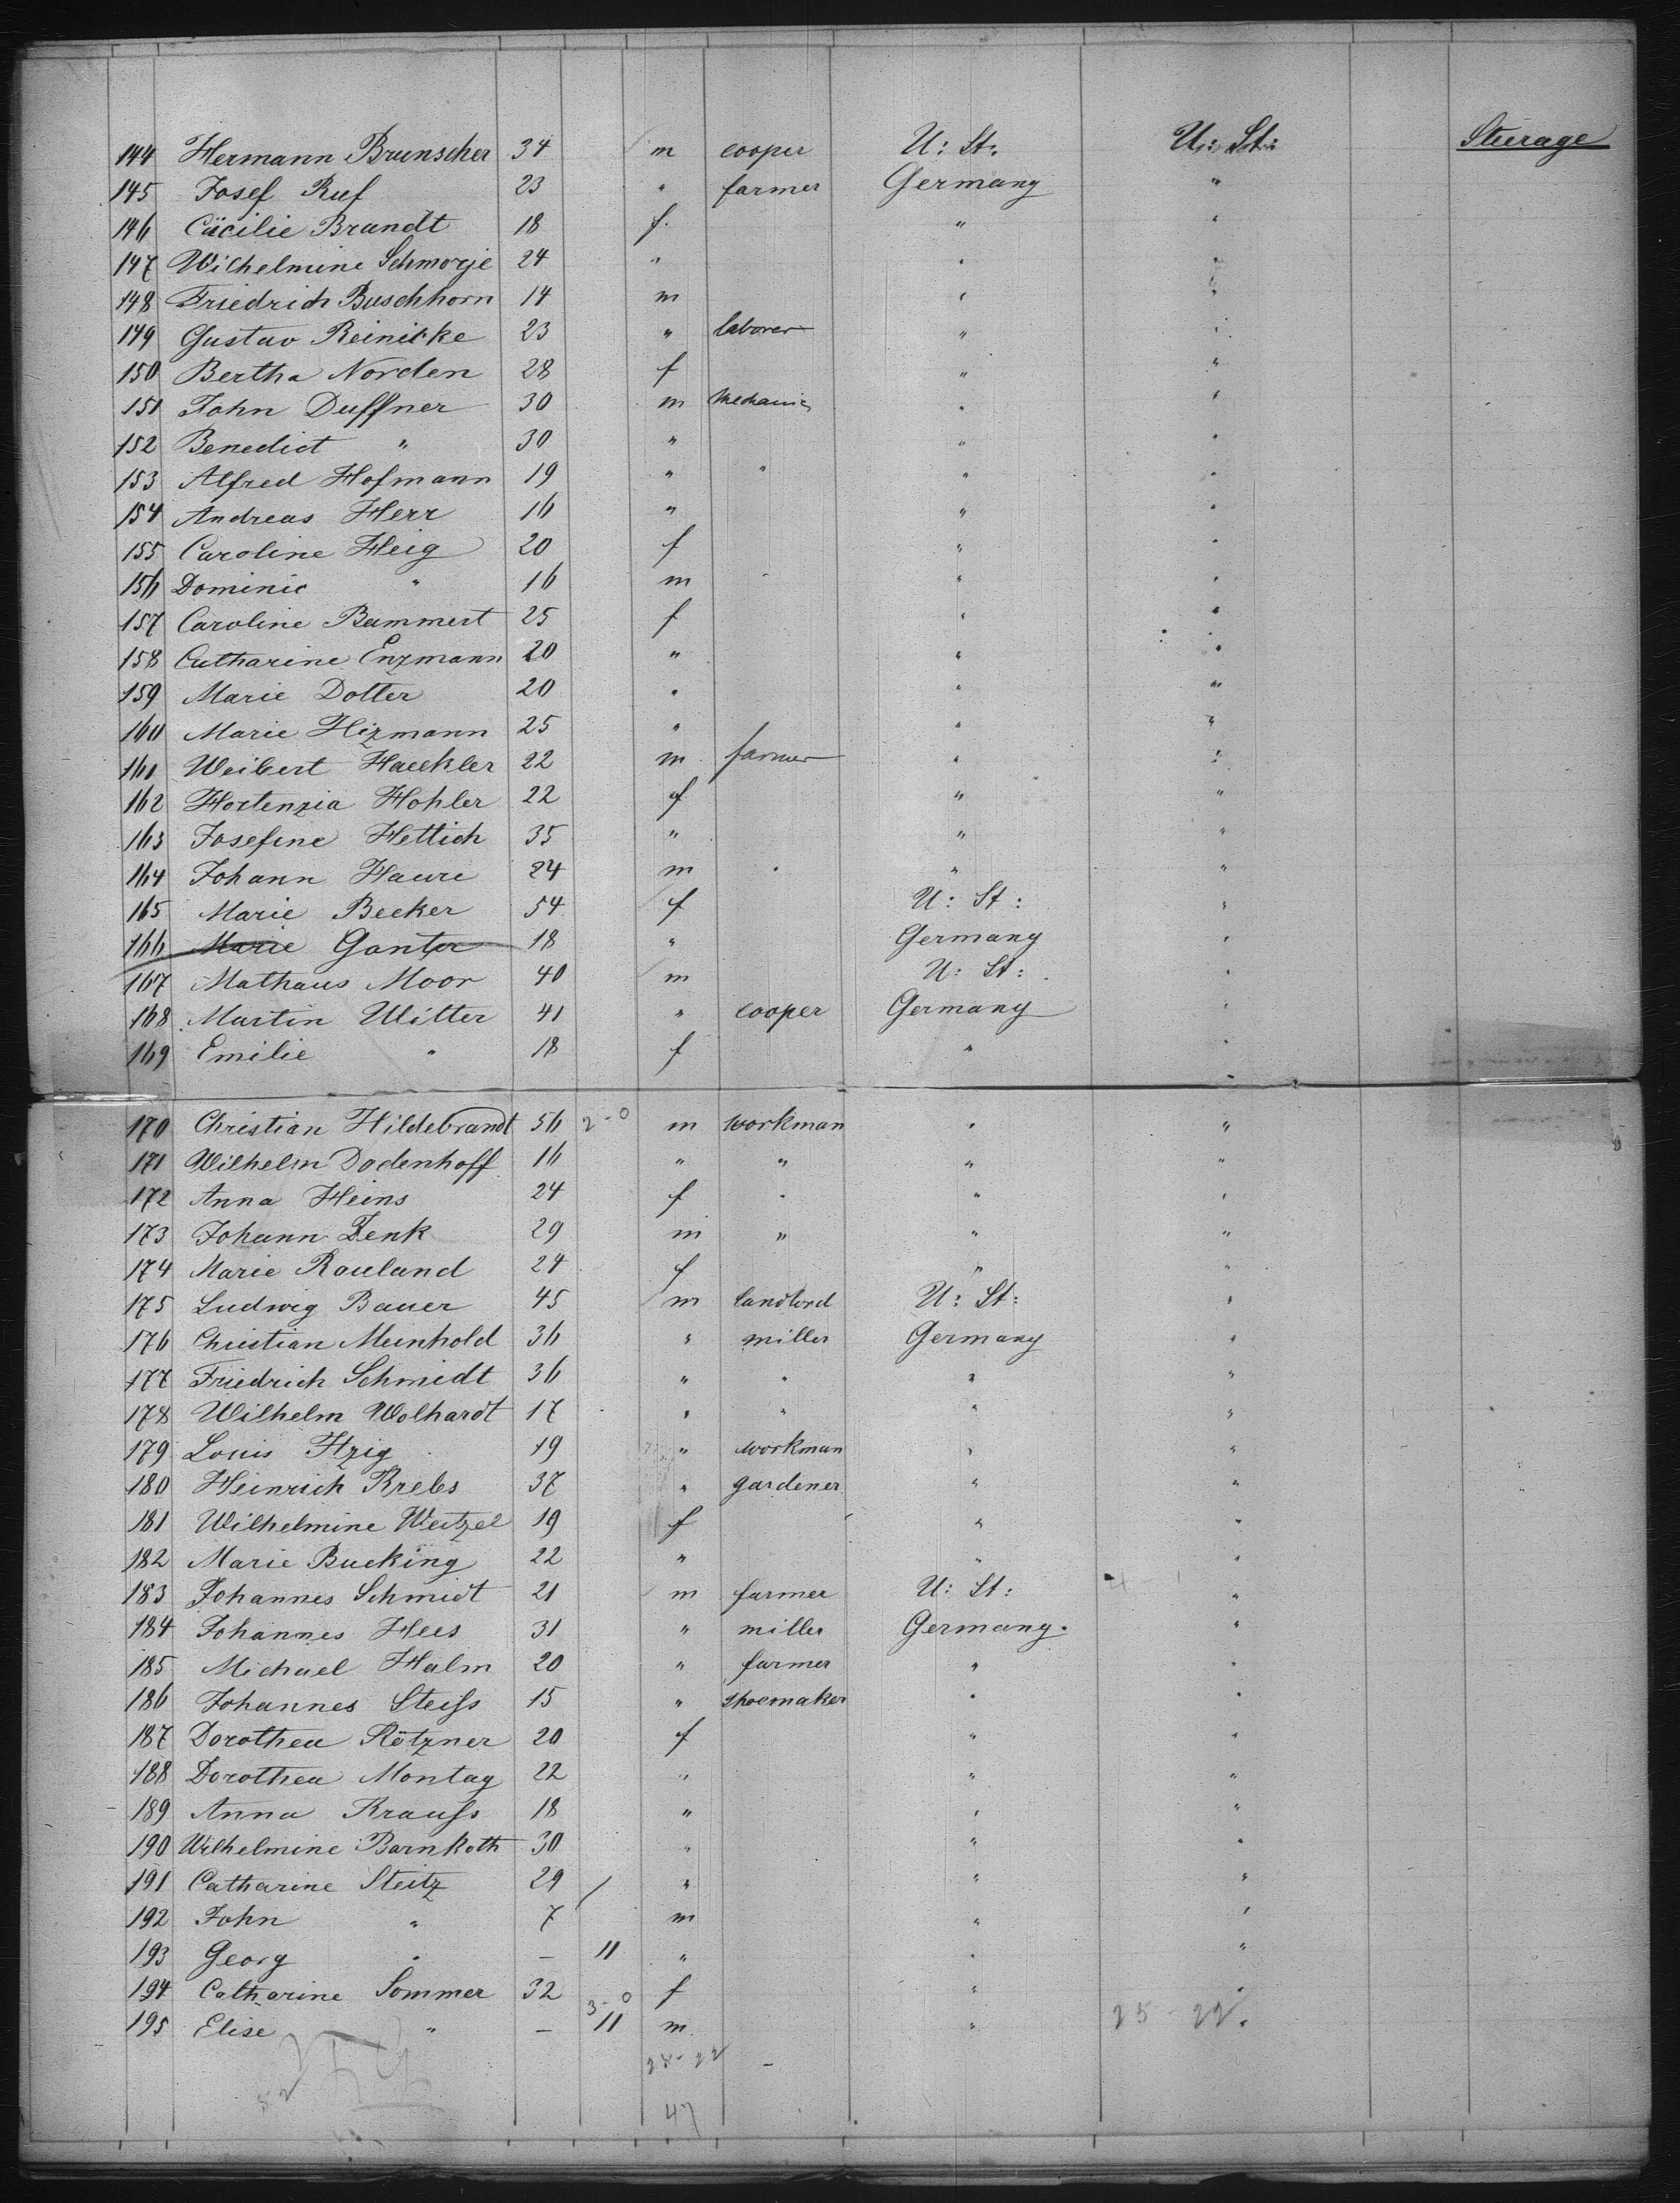 144 Hermann Brunscher 34 m cooper U: St: U: St: Steerage
145 Josef Ruf 23 " farmer Germany "
146 Cäcilie Brandt 18 f. " "
147 Wilhelmine Schmorje 24 " " "
148 Friedrich Buschhorn 14 m " "
149 Gustav Reinicke 23 " laborer " "
150 Bertha Norden 28 f " "
151 John Duffner 30 m Mechanic " "
152 Benedict " 30 " " "
153 Alfred Hofmann 19 " " " "
154 Andreas Herr 16 " " "
155 Caroline Heig 20 f " "
156 Dominic " 16 m " "
157 Caroline Bammert 25 f " "
158 Catharine Enzmann 20 " " "
159 Marie Dotter 20 " " "
160 Marie Hizmann 25 " " "
161 Weibert Haeckler 22 m farmer " "
162 Hortenzia Hohler 22 f " "
163 Josefine Hettich 35 " " "
164 Johann Haure 24 m " " "
165 Marie Becker 54 f U: St: "
166 Marie Ganter 18 " Germany "
167 Mathaus Moor 40 m U: St: "
168 Martin Witter 41 " cooper Germany "
169 Emilie " 18 f " "
170 Christian Hildebrandt 56 2-0 m workman " "
171 Wilhelm Dodenhoff 16 " " " "
172 Anna Heins 24 f " " "
173 Johann Denk 29 m " " "
174 Marie Rauland 24 f " "
175 Ludwig Bauer 45 m landlord U: St: "
176 Christian Meinhold 36 " miller Germany "
177 Friedrich Schmidt 36 " " " "
178 Wilhelm Wolhardt 17 " " " "
179 Louis Itzig 19 " workman " "
180 Heinrich Krebs 37 " gardener " "
181 Wilhelmine Weitzel 19 f " "
182 Marie Bucking 22 " " "
183 Johannes Schmidt 21 m farmer U: St: "
184 Johannes Hees 31 " miller Germany. "
185 Michael Halm 20 " farmer " "
186 Johannes Steiss 15 " shoemaker " "
187 Dorothea Rötzner 20 f " "
188 Dorothea Montag 22 " " "
189 Anna Krauss 18 " " "
190 Wilhelmine Barnkoth 30 " " "
191 Catharine Steitz 29 " " "
192 John " 7 m " "
193 Georg " — 11 " " "
194 Catharine Sommer 32 f " "
195 Elise " — 3-0 11 m " 25-22 "
25-22
47